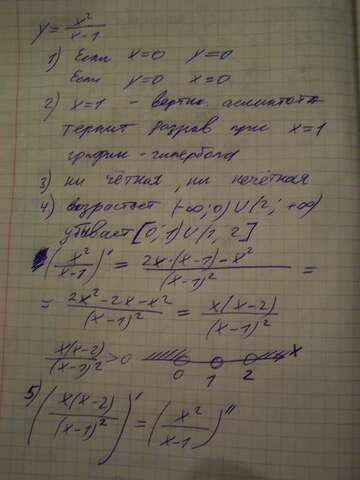 y = x²/(x-1)
1) Если x=0 y=0
Если y=0 x=0
2) x=1 - вертик. асимптота
терпит разрыв при x=1
график - гипербола
3) ни чётная, ни нечётная
4) возрастает (-∞;0)U(2;+∞)
убывает [0;1)U(1;2]
(x²/(x-1))' = (2x·(x-1)-x²)/(x-1)² =
= (2x²-2x-x²)/(x-1)² = x(x-2)/(x-1)²
x(x-2)/(x-1)² > 0 x
0 1 2
5) (x(x-2)/(x-1)²)' = (x²/(x-1))''